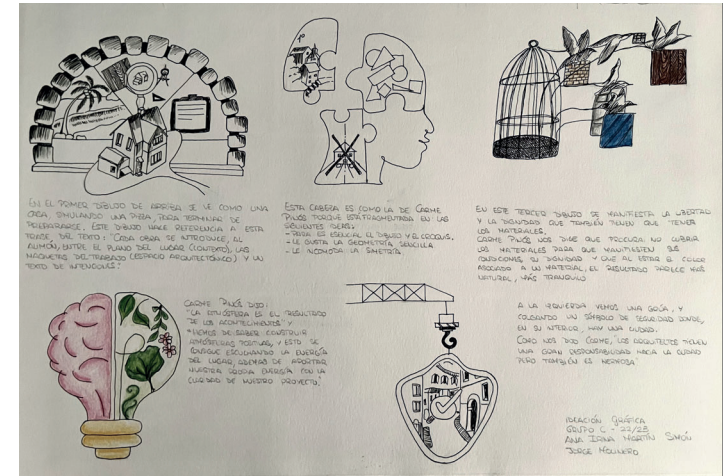 EN EL PRIMER DIBUJO DE ARRIBA SE VE COMO UNA
CASA, SIMULANDO UNA PIZZA, PARA TERMINAR DE
PREPARARSE, ESTE DIBUJO HACE REFERENCIA A ESTA
FRASE, DEL TEXTO: "CADA OBRA SE INTRODUCE, AL
ALIMÓN, ENTRE EL PLANO DEL LUGAR (CONTEXTO), LAS
MAQUETAS DEL TRABAJO (ESPACIO ARQUITECTÓNICO) Y UN
TEXTO DE INTENCIONES."
ESTA CABEZA ES COMO LA DE CARME
PINÓS PORQUE ESTÁ FRAGMENTADA EN LAS
SIGUIENTES IDEAS:
- PARA ES ESENCIAL EL DIBUJO Y EL CROQUIS.
- LE GUSTA LA GEOMETRÍA SENCILLA
- LE INCOMODA LA SIMETRÍA
EN ESTE TERCER DIBUJO SE MANIFIESTA LA LIBERTAD
Y LA DIGNIDAD QUE TAMBIÉN TIENEN QUE TENER
LOS MATERIALES.
CARME PINÓS NOS DICE QUE PROCURA NO CUBRIR
LOS MATERIALES PARA QUE MANIFIESTEN SUS
CONDICIONES, SU DIGNIDAD Y QUE AL ESTAR EL COLOR
ASOCIADO A UN MATERIAL, EL RESULTADO PARECE MÁS
NATURAL, MÁS TRANQUILO
CARME PINÓS DIJO:
"LA ATMÓSFERA ES EL RESULTADO
DE LOS ACONTECIMIENTOS" Y
"HEMOS DE SABER CONSTRUIR
ATMÓSFERAS POSITIVAS, Y ESTO SE
CONSIGUE ESCUCHANDO LA ENERGÍA
DEL LUGAR, ADEMÁS DE APORTAR
NUESTRA PROPIA ENERGÍA CON LA
CUALIDAD DE NUESTRO PROYECTO."
A LA IZQUIERDA VEMOS UNA GRÚA, Y
COLGANDO UN SÍMBOLO DE SEGURIDAD DONDE,
EN SU INTERIOR, HAY UNA CIUDAD.
COMO NOS DIJO CARME, LOS ARQUITECTOS TIENEN
UNA GRAN RESPONSABILIDAD HACIA LA CIUDAD
PERO TAMBIÉN ES HERMOSA
IDEACIÓN GRÁFICA
GRUPO C - 22/23
ANA IRINA MARTÍN SIMÓN
JORGE MOLINERO